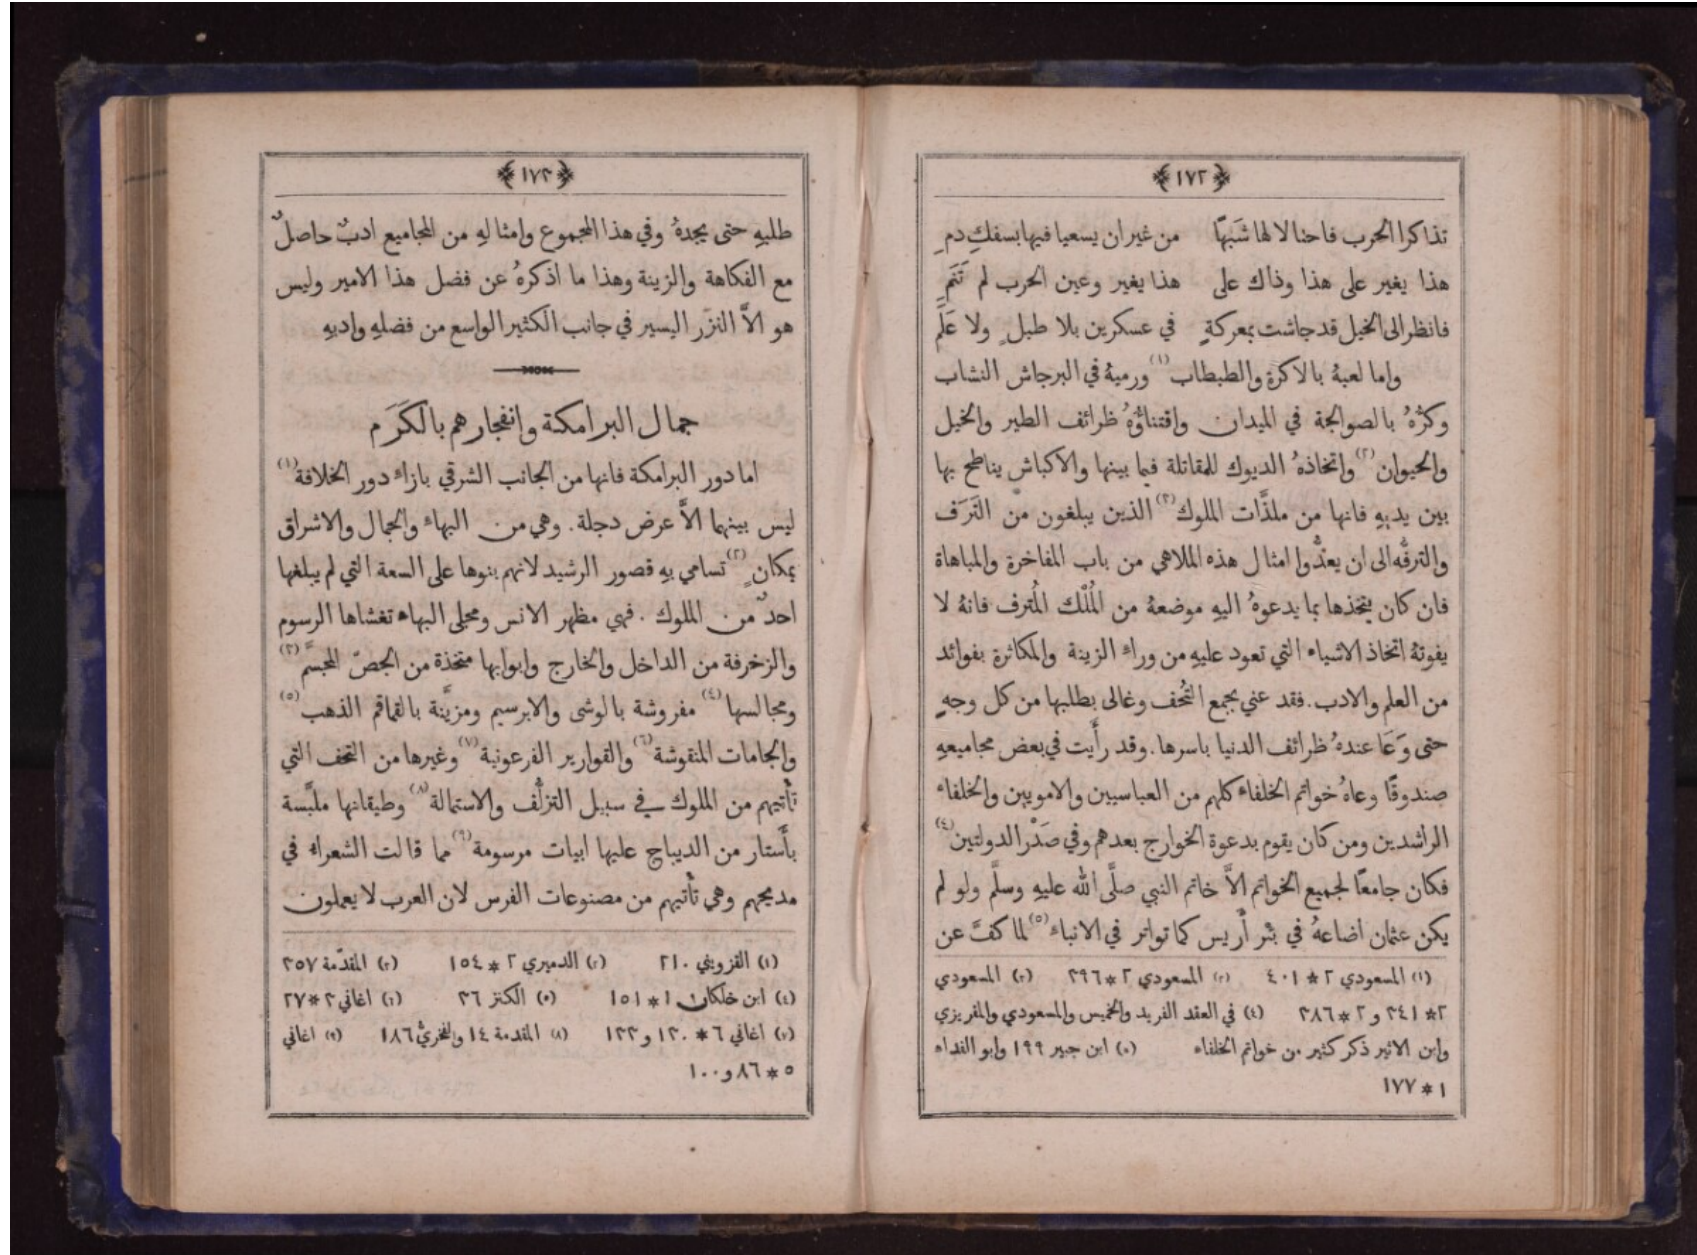 ﴿١٧٢﴾
تذاكرا الحرب فاحنالا لها شَبَهًا من غير ان يسعيا فيها بسفكِ دمِ
هذا يغير على هذا وذاك على هذا يغير وعين الحرب لم تَنَمِ
فانظر الى الخيل قد جاشت بمعركةٍ في عسكرين بلا طبلٍ ولا عَلَمِ
واما لعبهُ بالاكرة والطبطاب(١) ورميهُ في البرجاش النشاب
وكرُّهُ بالصوالجة في الميدان واقتناؤُهُ ظرائف الطير والخيل
والحيوان(٢) واتخاذهُ الديوك للمقاتلة فيما بينها والاكباش يناطح بها
بين يديهِ فانها من ملذَّات الملوك(٣) الذين يبلغون من التَرَف
والترفُّه الى ان يعدُّوا امثال هذه الملاهي من باب المفاخرة والمباهاة
فان كان يتخذها بما يدعوهُ اليهِ موضعهُ من المُلْك المُترف فانهُ لا
يفوتهُ اتخاذ الاشياء التي تعود عليهِ من وراء الزينة والمكاثرة بفوائد
من العلم والادب. فقد عني بجمع التُحف وغالى بطلبها من كل وجهٍ
حتى وَعَا عندهُ ظرائف الدنيا باسرها. وقد رأَيت في بعض مجاميعهِ
صندوقًا وعاهُ خواتم الخلفاء كلهم من العباسيين والامويين والخلفاء
الراشدين ومن كان يقوم بدعوة الخوارج بعدهم وفي صَدْر الدولتين(٤)
فكان جامعًا لجميع الخواتم الاَّ خاتم النبي صلَّى الله عليهِ وسلَّم ولو لم
يكن عثمان اضاعهُ في بئر أَريس كما تواتر في الانباء(٥) لما كفَّ عن
(١) المسعودي ٢ * ٤٠١ (٢) المسعودي ٢ * ٣٩٦ (٣) المسعودي
٢ * ٣٤١ و ٢ * ٣٨٦ (٤) في العقد الفريد والخميس والمسعودي والمقريزي
وابن الاثير ذكر كثير من خواتم الخلفاء (٥) ابن جبير ١٩٩ وابو الفداء
١ * ١٧٧
﴿١٧٣﴾
طلبهِ حتى يجدهُ وفي هذا المجموع وامثالهِ من المجاميع ادبٌ حاصلٌ
مع الفكاهة والزينة وهذا ما اذكرهُ عن فضل هذا الامير وليس
هو الاَّ النزر اليسير في جانب الكثير الواسع من فضلهِ وادبهِ
جمال البرامكة وانفجارهم بالكَرَم
اما دور البرامكة فانها من الجانب الشرقي بازاء دور الخلافة(١)
ليس بينهما الاَّ عرض دجلة. وهي من البهاء والجمال والاشراق
بمكانٍ(٢) تسامي بهِ قصور الرشيد لانهم بنوها على السعة التي لم يبلغها
احدٌ من الملوك. فهي مظهر الانس ومجلى البهاء تغشاها الرسوم
والزخرفة من الداخل والخارج وابوابها متخذة من الجصّ المجسَّم(٣)
ومجالسها(٤) مفروشة بالوشى والابرسيم ومزيَّنة بالقماقم الذهب(٥)
والجامات المنقوشة(٦) والقوارير الفرعونية(٧) وغيرها من التحف التي
تأْتيهم من الملوك في سبيل التزلُّف والاستمالة(٨) وطيقانها ملبَّسة
بأَستار من الديباج عليها ابيات مرسومة(٩) مما قالت الشعراء في
مديحهم وهي تأْتيهم من مصنوعات الفرس لان العرب لا يعملون
(١) القزويني ٢١٠ (٢) الدميري ٢ * ١٥٤ (٣) المقدّمة ٣٥٧
(٤) ابن خلكان ١ * ١٥١ (٥) الكنز ٣٦ (٦) اغاني ٢ * ٢٧
(٧) اغاني ٦ * ١٣٠ و ١٣٣ (٨) المقدمة ١٤ والفخري ١٨٦ (٩) اغاني
٥ * ٨٦ و ١٠٠